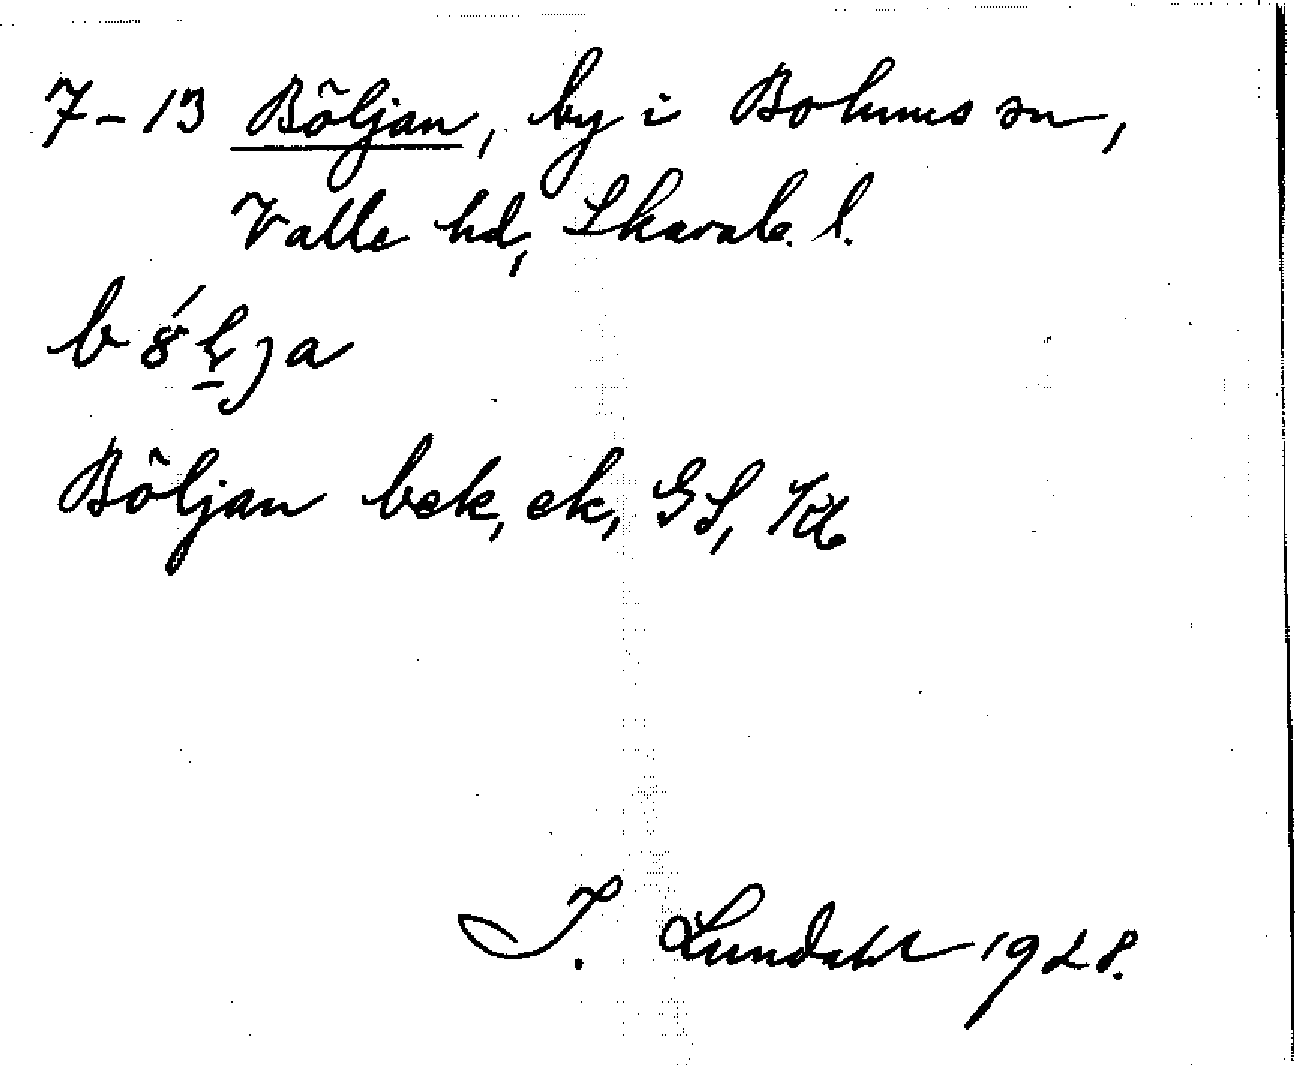 7-13 Böljan, by i Bolums sn,
Valle hd, Skarab. l.
Böljan bek, ek, GS, Kb
I. Lundahl 1928.